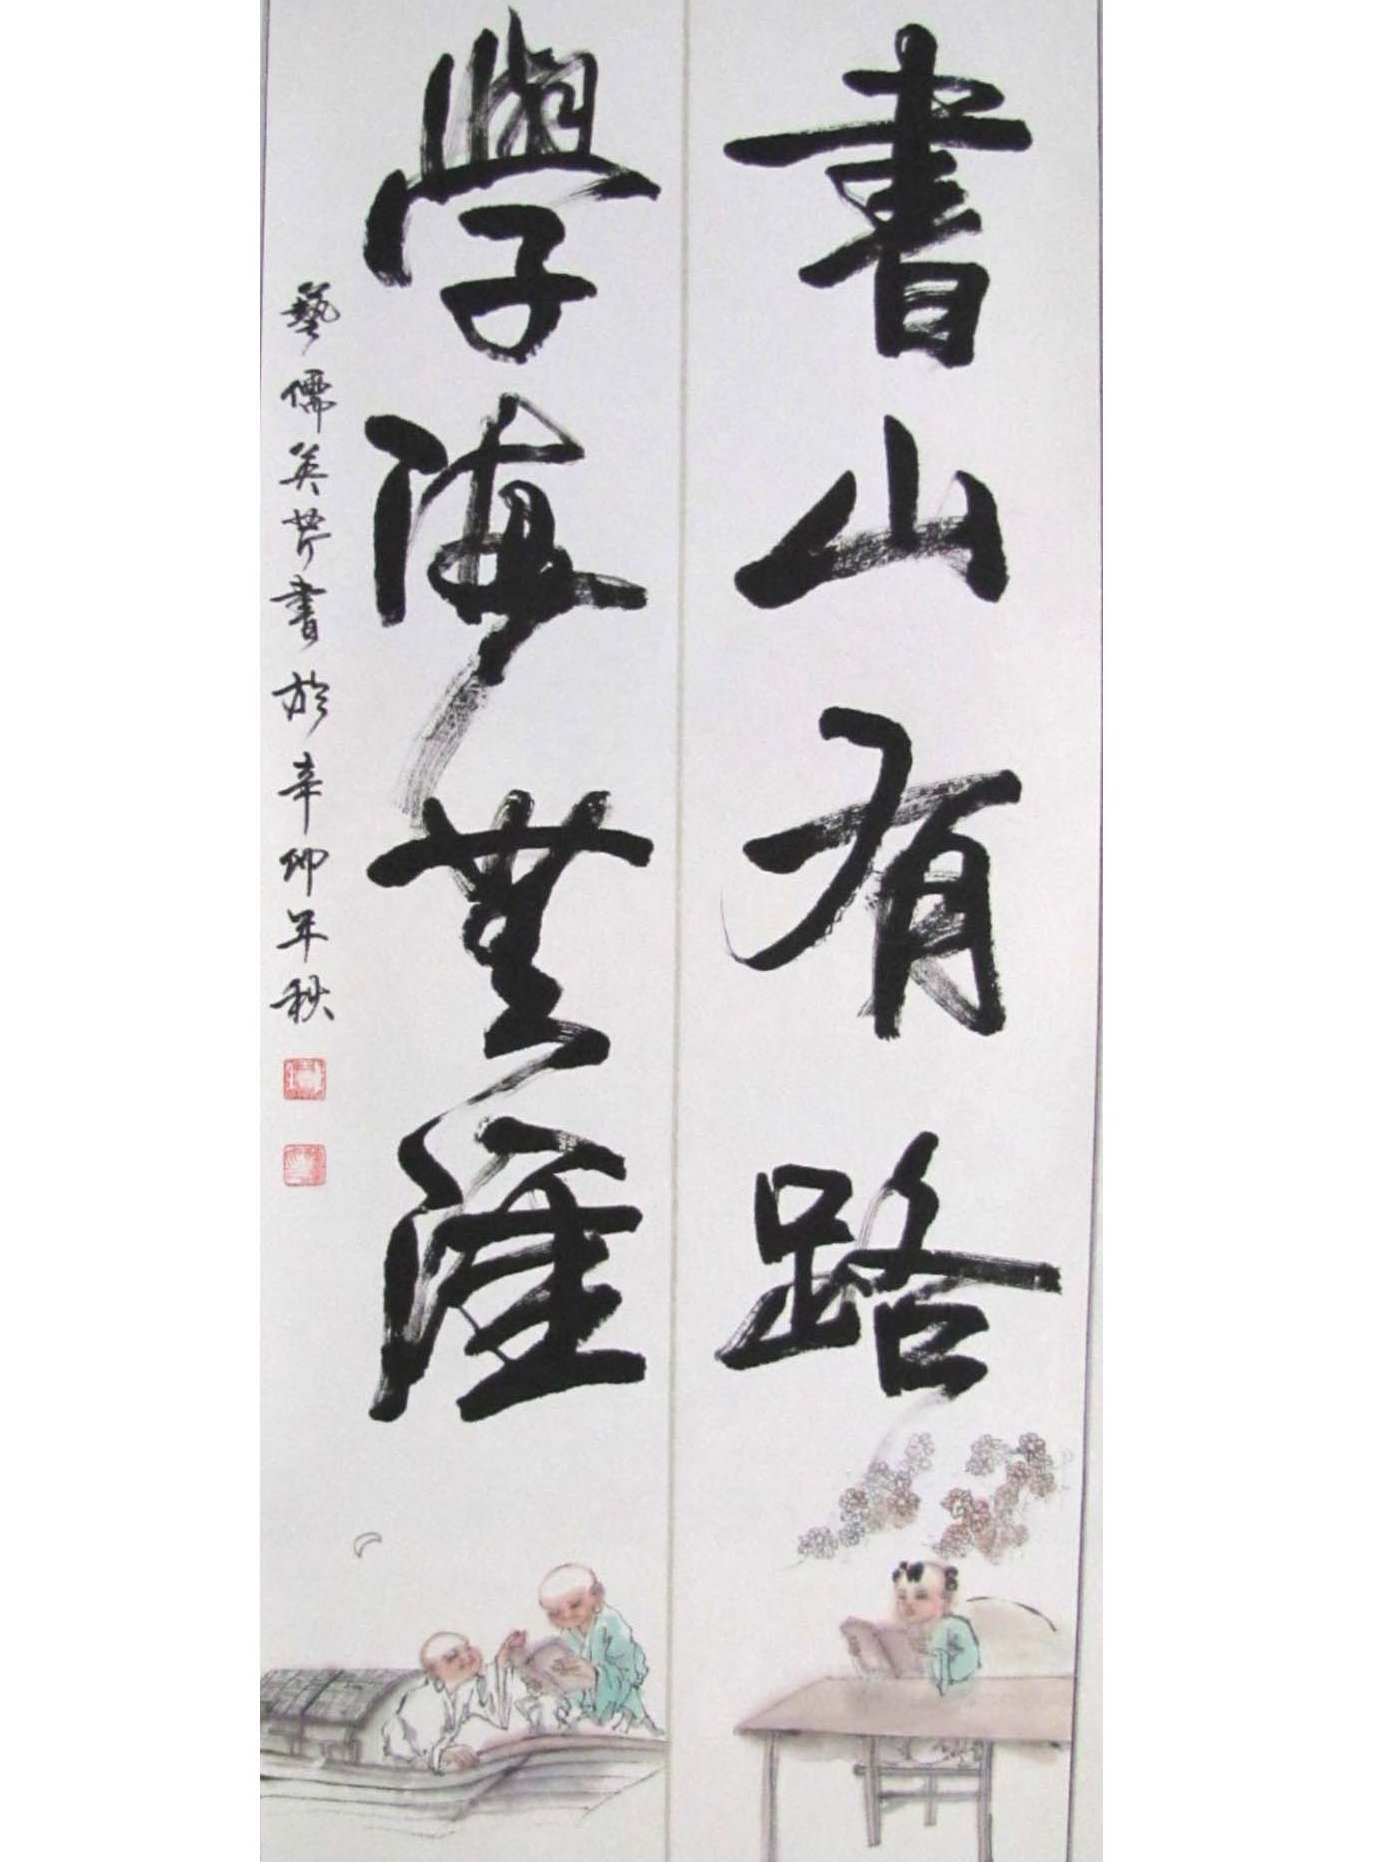 書山有路
學海無涯
藝儒英芹書於辛卯年秋